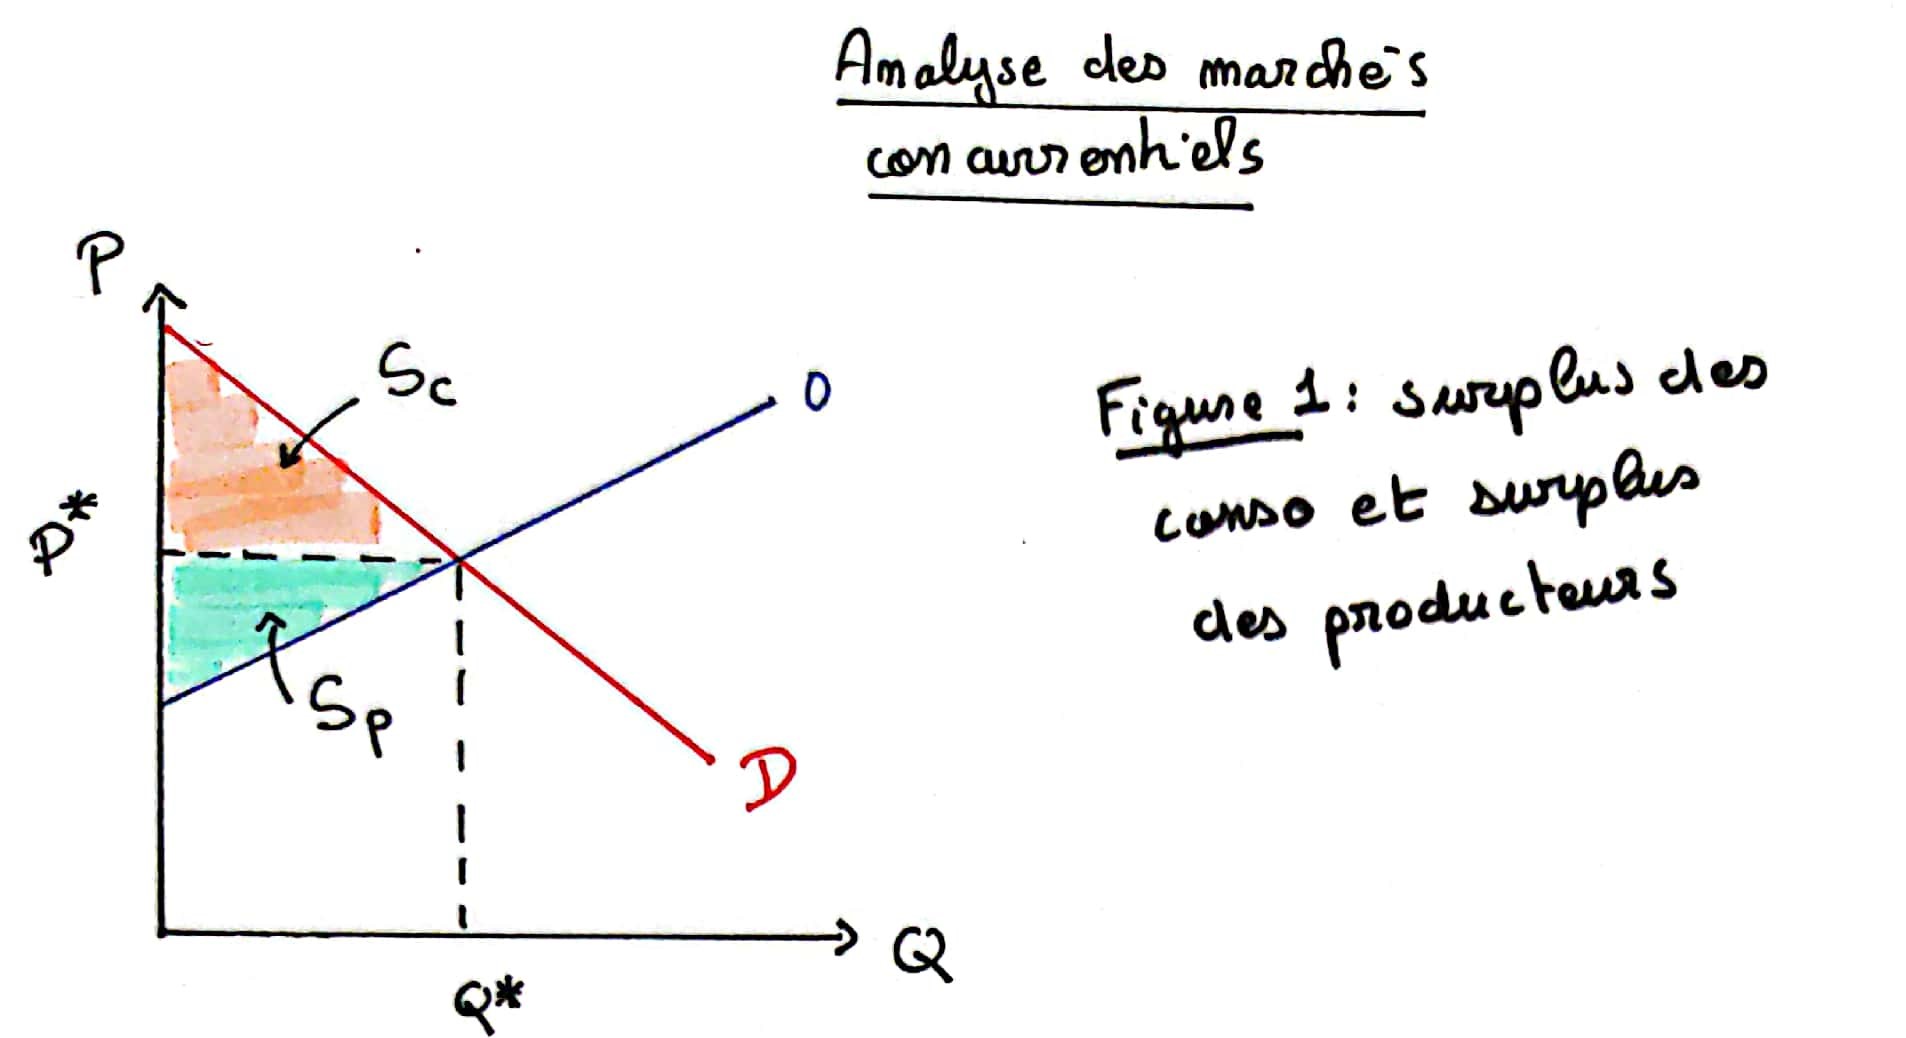 Analyse des marchés
concurrentiels
P
Sc
O
Figure 1: surplus des
conso et surplus
des producteurs
P*
Sp
D
Q
Q*